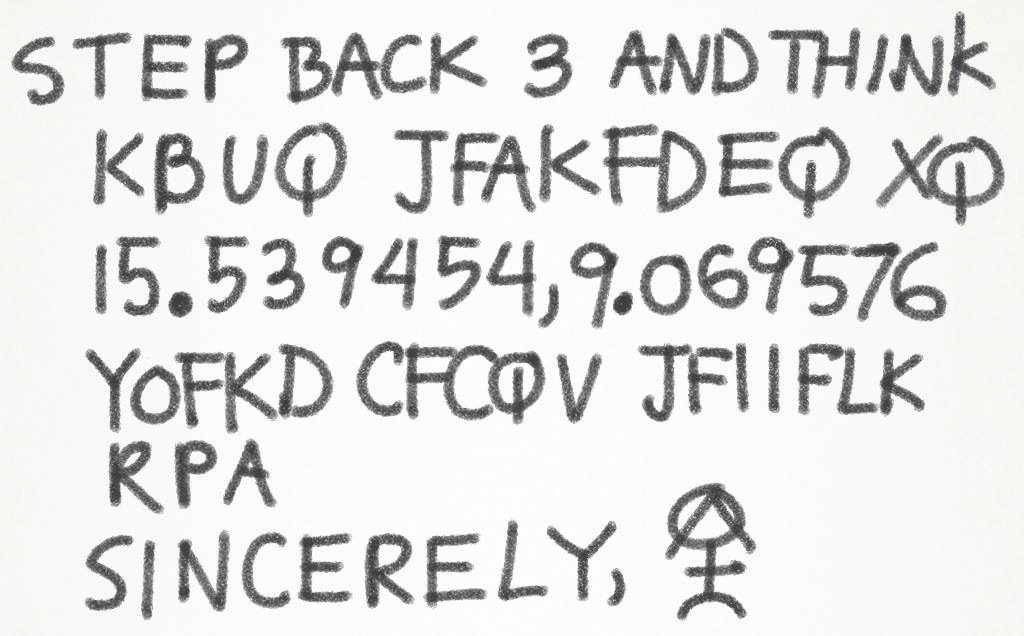 STEP BACK 3 AND THINK
KBUQ JFAKFDEQ XQ
15.539454,9.069576
YOFKD CFCQV JFIIFLK
RPA
SINCERELY,